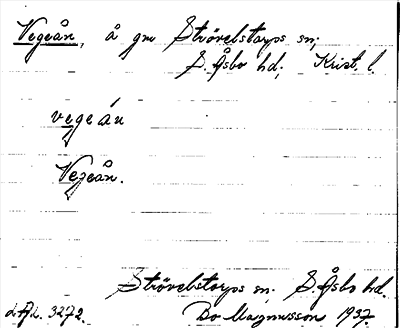 Vegeån, å gm Strövelstorps sn;
S. Åsbo hd; Krist. l.
vegeán
Vegeån.
Strövelstorps sn; S. Åsbo hd.
Bo Magnusson 1937.
3272.